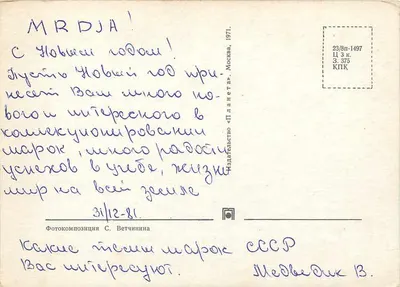 MRDJA!
С Новым годом!
Пусть Новый год при-
несёт Вам много но-
вого и интересного в
коллекционировании
марок, много радости
успехов в учебе, жизни
мир на всей земле
31/12-81.
Какие темы марок СССР
Вас интересуют. Медведик В.
Фотокомпозиция С. Ветчинина
Издательство «Планета». Москва, 1971.
23/8п-1497
Ц 3 к.
З. 375
КПК